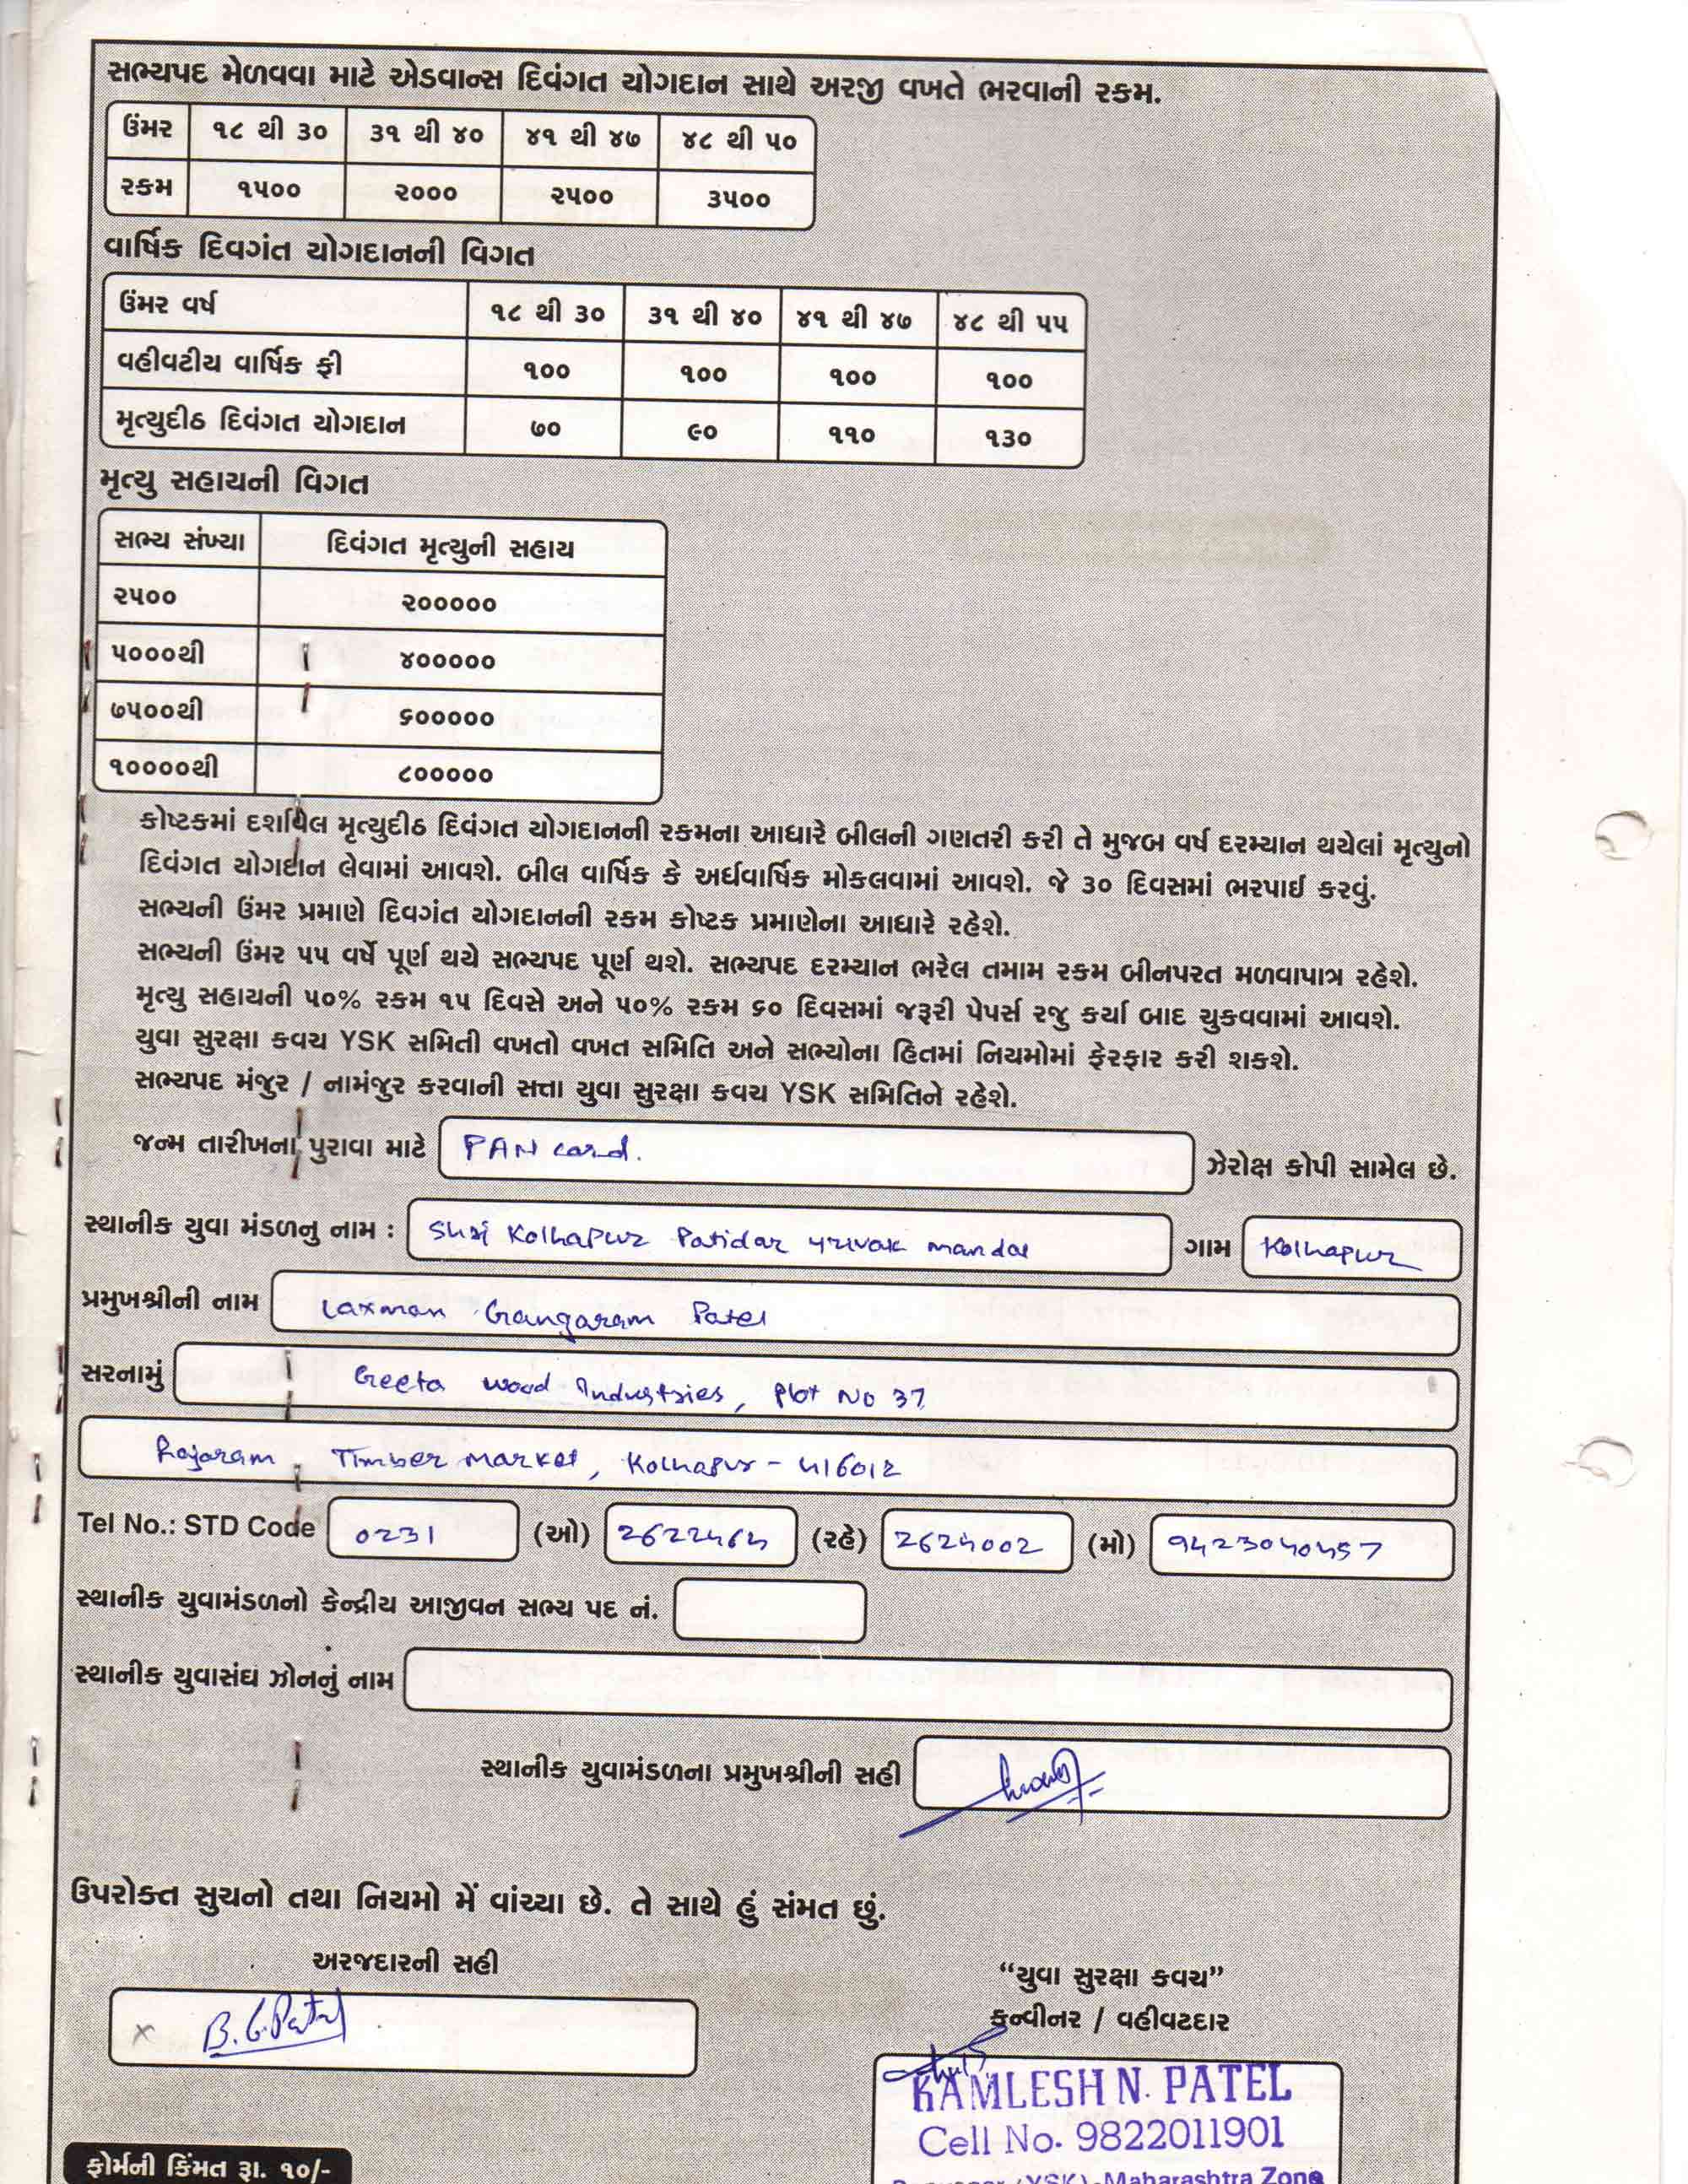 સભ્યપદ મેળવવા માટે એડવાન્સ દિવંગત યોગદાન સાથે અરજી વખતે ભરવાની રકમ.
ઉંમર ૧૮ થી ૩૦ ૩૧ થી ૪૦ ૪૧ થી ૪૭ ૪૮ થી ૫૦
રકમ ૧૫૦૦ ૨૦૦૦ ૨૫૦૦ ૩૫૦૦
વાર્ષિક દિવગંત યોગદાનની વિગત
ઉંમર વર્ષ ૧૮ થી ૩૦ ૩૧ થી ૪૦ ૪૧ થી ૪૭ ૪૮ થી ૫૫
વહીવટીય વાર્ષિક ફી ૧૦૦ ૧૦૦ ૧૦૦ ૧૦૦
મૃત્યુદીઠ દિવંગત યોગદાન ૭૦ ૯૦ ૧૧૦ ૧૩૦
મૃત્યુ સહાયની વિગત
સભ્ય સંખ્યા દિવંગત મૃત્યુની સહાય
૨૫૦૦ ૨૦૦૦૦૦
૫૦૦૦થી ૪૦૦૦૦૦
૭૫૦૦થી ૬૦૦૦૦૦
૧૦૦૦૦થી ૮૦૦૦૦૦
કોષ્ટકમાં દર્શાવેલ મૃત્યુદીઠ દિવંગત યોગદાનની રકમના આધારે બીલની ગણતરી કરી તે મુજબ વર્ષ દરમ્યાન થયેલાં મૃત્યુનો
દિવંગત યોગદાન લેવામાં આવશે. બીલ વાર્ષિક કે અર્ધવાર્ષિક મોકલવામાં આવશે. જે ૩૦ દિવસમાં ભરપાઈ કરવું.
સભ્યની ઉંમર પ્રમાણે દિવગંત યોગદાનની રકમ કોષ્ટક પ્રમાણેના આધારે રહેશે.
સભ્યની ઉંમર ૫૫ વર્ષે પૂર્ણ થયે સભ્યપદ પૂર્ણ થશે. સભ્યપદ દરમ્યાન ભરેલ તમામ રકમ બીનપરત મળવાપાત્ર રહેશે.
મૃત્યુ સહાયની ૫૦% રકમ ૧૫ દિવસે અને ૫૦% રકમ ૬૦ દિવસમાં જરૂરી પેપર્સ રજુ કર્યા બાદ ચુકવવામાં આવશે.
યુવા સુરક્ષા કવચ YSK સમિતી વખતો વખત સમિતિ અને સભ્યોના હિતમાં નિયમોમાં ફેરફાર કરી શકશે.
સભ્યપદ મંજુર / નામંજુર કરવાની સત્તા યુવા સુરક્ષા કવચ YSK સમિતિને રહેશે.
જન્મ તારીખના પુરાવા માટે PAN card. ઝેરોક્ષ કોપી સામેલ છે.
સ્થાનીક યુવા મંડળનુ નામ : Shri Kolhapur Patidar yuvak mandal ગામ Kolhapur
પ્રમુખશ્રીની નામ Laxman Gangaram Patel
સરનામું Geeta wood Industries, Plot No 37
Rajaram Timber market, Kolhapur - 416012
Tel No.: STD Code 0231 (ઓ) 2622464 (રહે) 2624002 (મો) 9423040457
સ્થાનીક યુવામંડળનો કેન્દ્રીય આજીવન સભ્ય પદ નં.
સ્થાનીક યુવાસંઘ ઝોનનું નામ
સ્થાનીક યુવામંડળના પ્રમુખશ્રીની સહી
ઉપરોક્ત સુચનો તથા નિયમો મેં વાંચ્યા છે. તે સાથે હું સંમત છું.
અરજદારની સહી
“યુવા સુરક્ષા કવચ”
કન્વીનર / વહીવટદાર
x B.G.Patel
KAMLESH N. PATEL
Cell No. 9822011901
(YSK)-Maharashtra Zone
ફોર્મની કિંમત રૂા. ૧૦/-